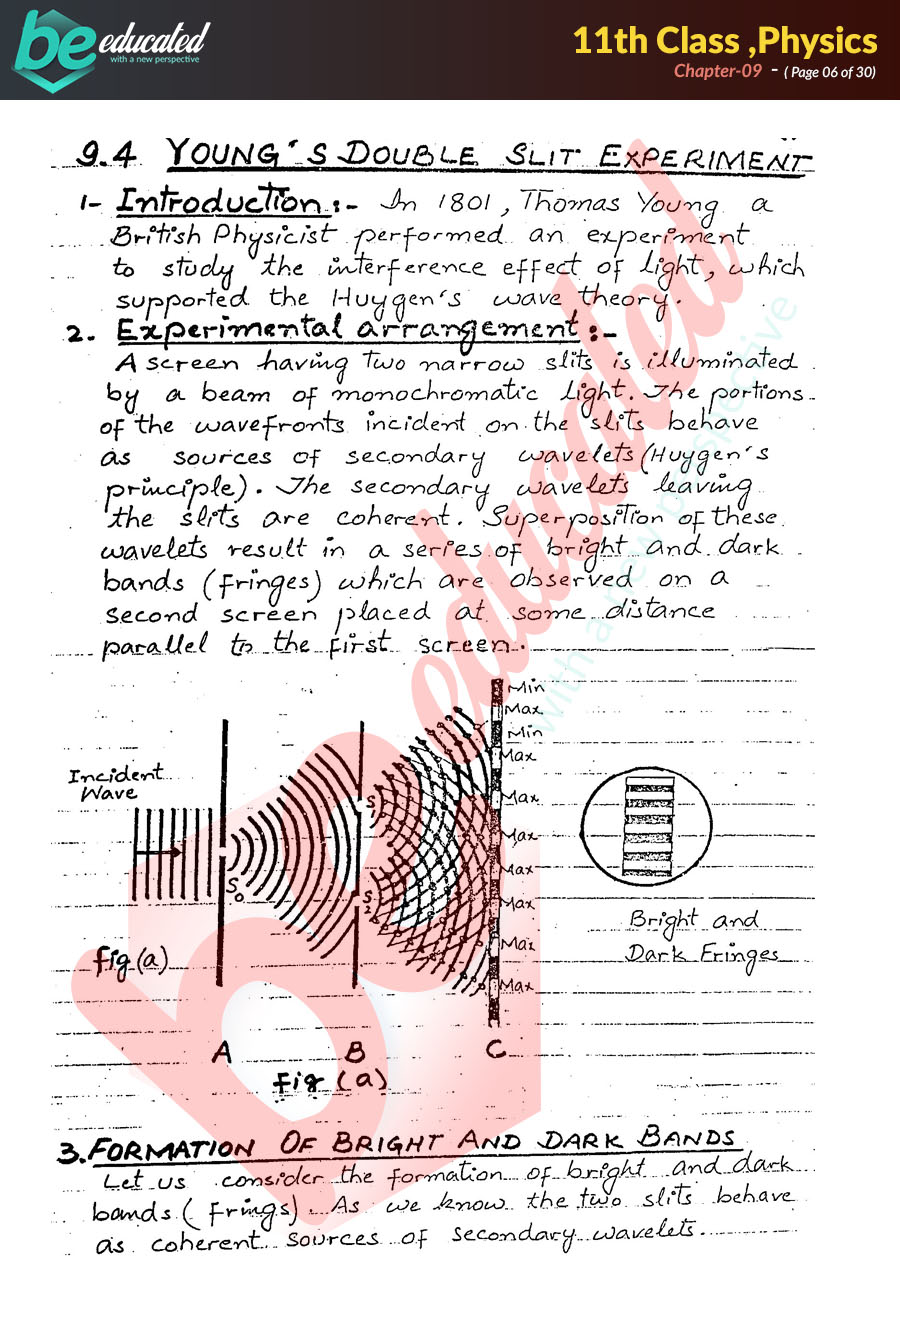 be educated
with a new perspective
11th Class ,Physics
Chapter-09 - ( Page 06 of 30)
9.4 YOUNG'S DOUBLE SLIT EXPERIMENT
1- Introduction:- In 1801, Thomas Young a
British Physicist performed an experiment
to study the interference effect of light, which
supported the Huygen's wave theory.
2. Experimental arrangement:-
A screen having two narrow slits is illuminated
by a beam of monochromatic light. The portions
of the wavefronts incident on the slits behave
as sources of secondary wavelets (Huygen's
principle). The secondary wavelets leaving
the slits are coherent. Superposition of these
wavelets result in a series of bright and dark
bands (fringes) which are observed on a
second screen placed at some distance
parallel to the first screen.
Min
Max
Min
Max
Incident
Wave
Max
S1
Max
Max
S0
S2
Max
Bright and
Max
Dark Fringes
fig (a)
Max
A B C
fig (a)
3. FORMATION OF BRIGHT AND DARK BANDS
Let us consider the formation of bright and dark
bands (frings). As we know the two slits behave
as coherent sources of secondary wavelets.
be educated
with a new perspective